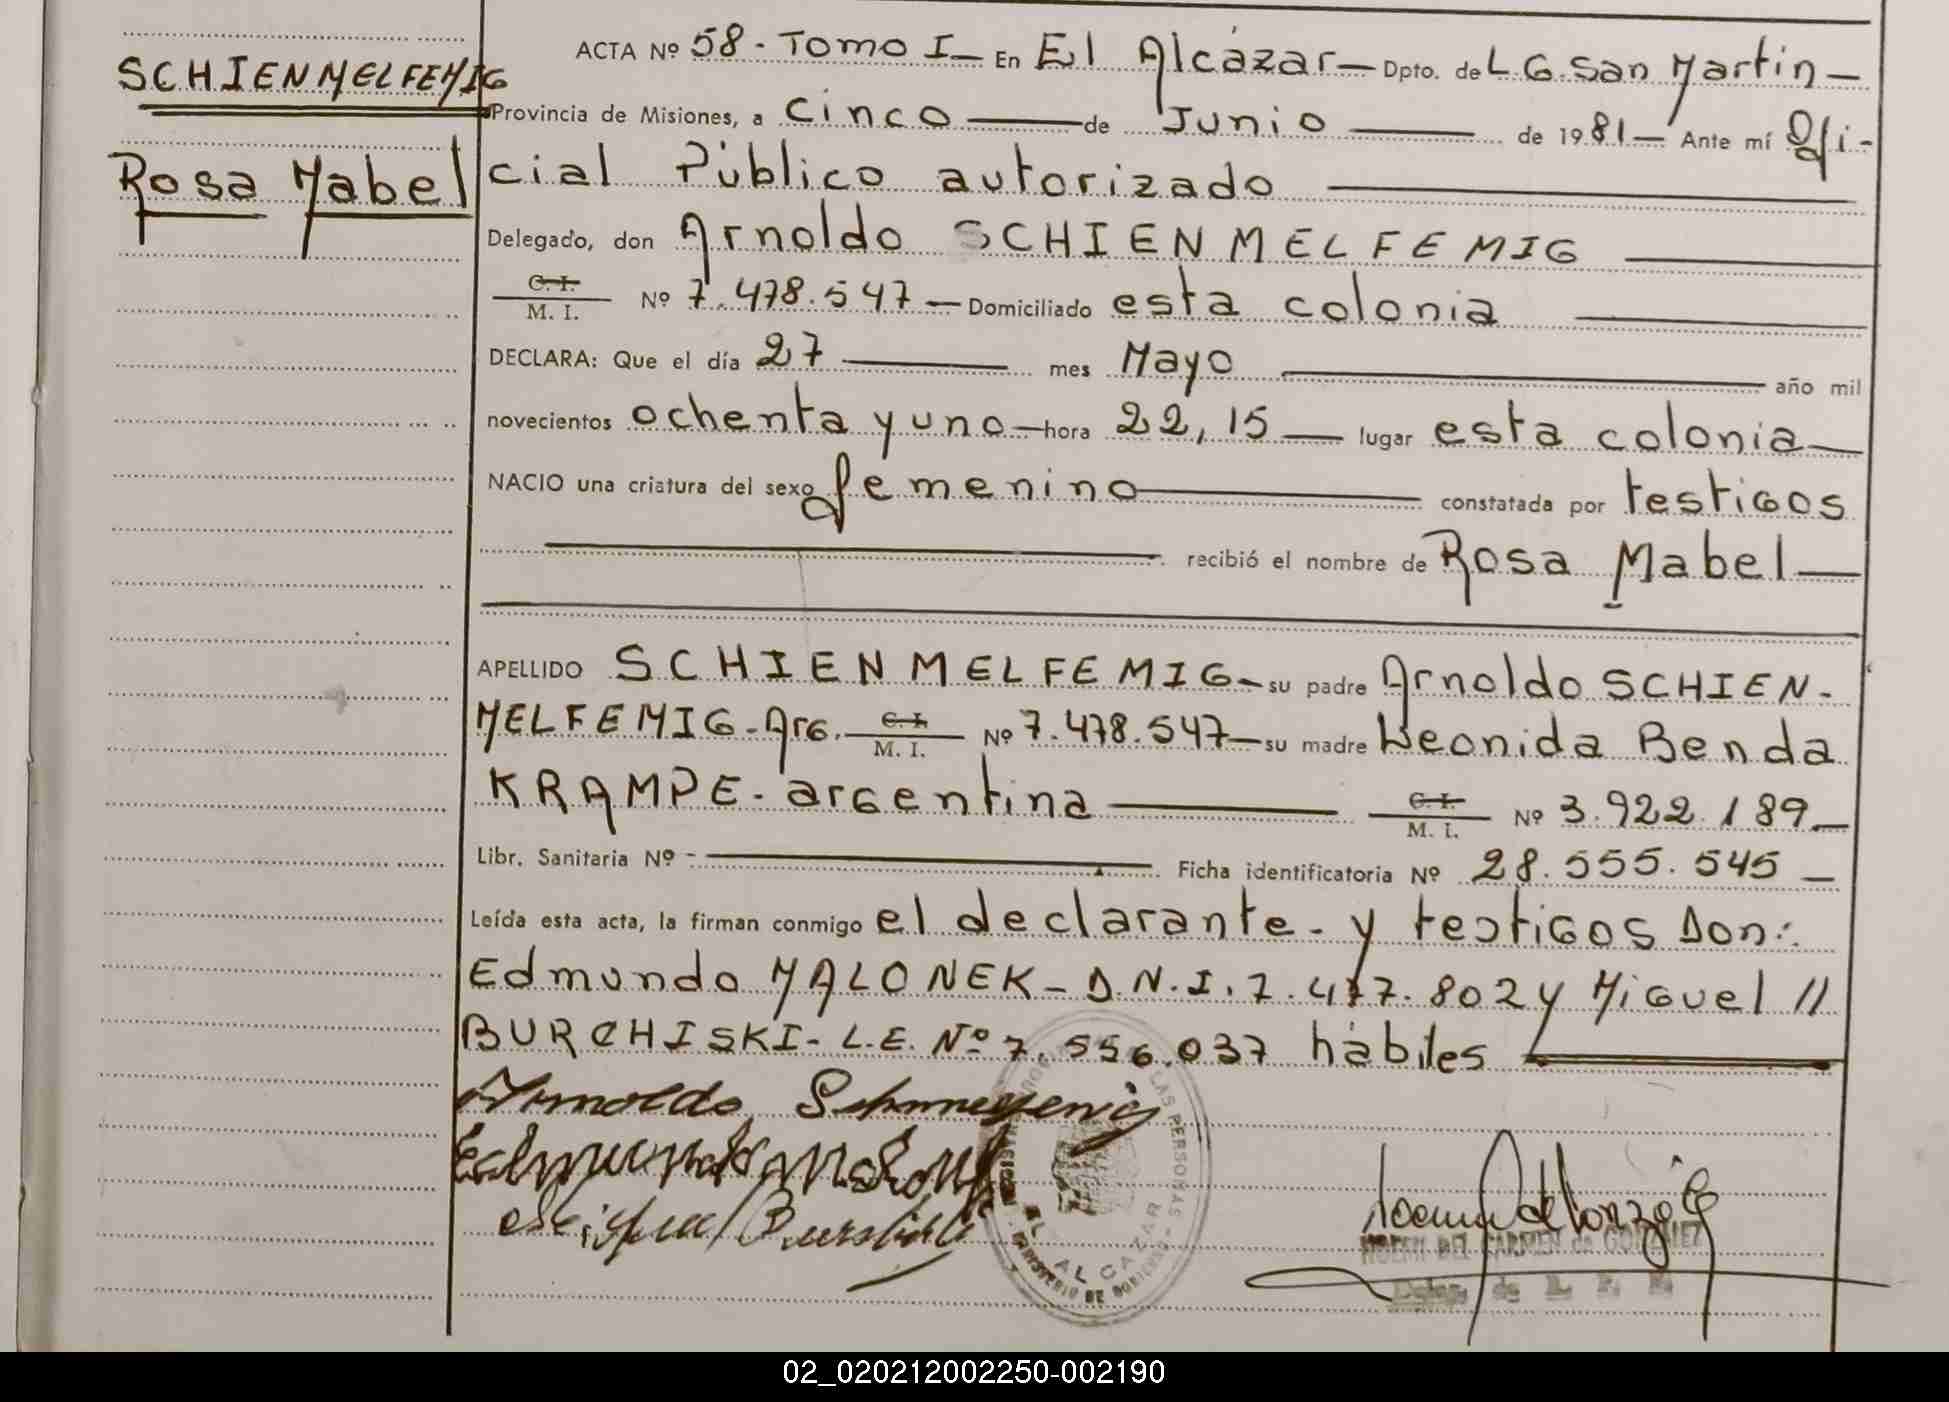 SCHIENMELFEMIG
Rosa Mabel
ACTA Nº 58 - Tomo I — En El Alcázar — Dpto. de L G. San Martin —
Provincia de Misiones, a cinco — de Junio — de 1981 — Ante mí Ofi-
cial Público autorizado —
Delegado, don Arnoldo SCHIENMELFEMIG —
C. I.
M. I. Nº 7.478.547 — Domiciliado esta colonia —
DECLARA: Que el día 27 — mes Mayo — año mil
novecientos ochenta y uno — hora 22,15 — lugar esta colonia —
NACIO una criatura del sexo femenino — constatada por testigos
— recibió el nombre de Rosa Mabel —
APELLIDO SCHIENMELFEMIG — su padre Arnoldo SCHIEN-
MELFEMIG - Arg. — C. I. M. I. Nº 7.478.547 — su madre Leonida Benda
KRAMPE - argentina — C. I. M. I. Nº 3.922.189 —
Libr. Sanitaria Nº - — Ficha identificatoria Nº 28.555.545 —
Leída esta acta, la firman conmigo el declarante - y testigos Don:
Edmundo MALONEK - D.N.I. 7.477.802 y Miguel //
BURCHISKI - L.E. Nº 7.556.037 hábiles —
Arnoldo
LAS PERSONAS
EL ALCAZAR
MINISTERIO DE GOBIERNO
NOEMI DEL CARMEN de GONZALEZ
02_020212002250-002190